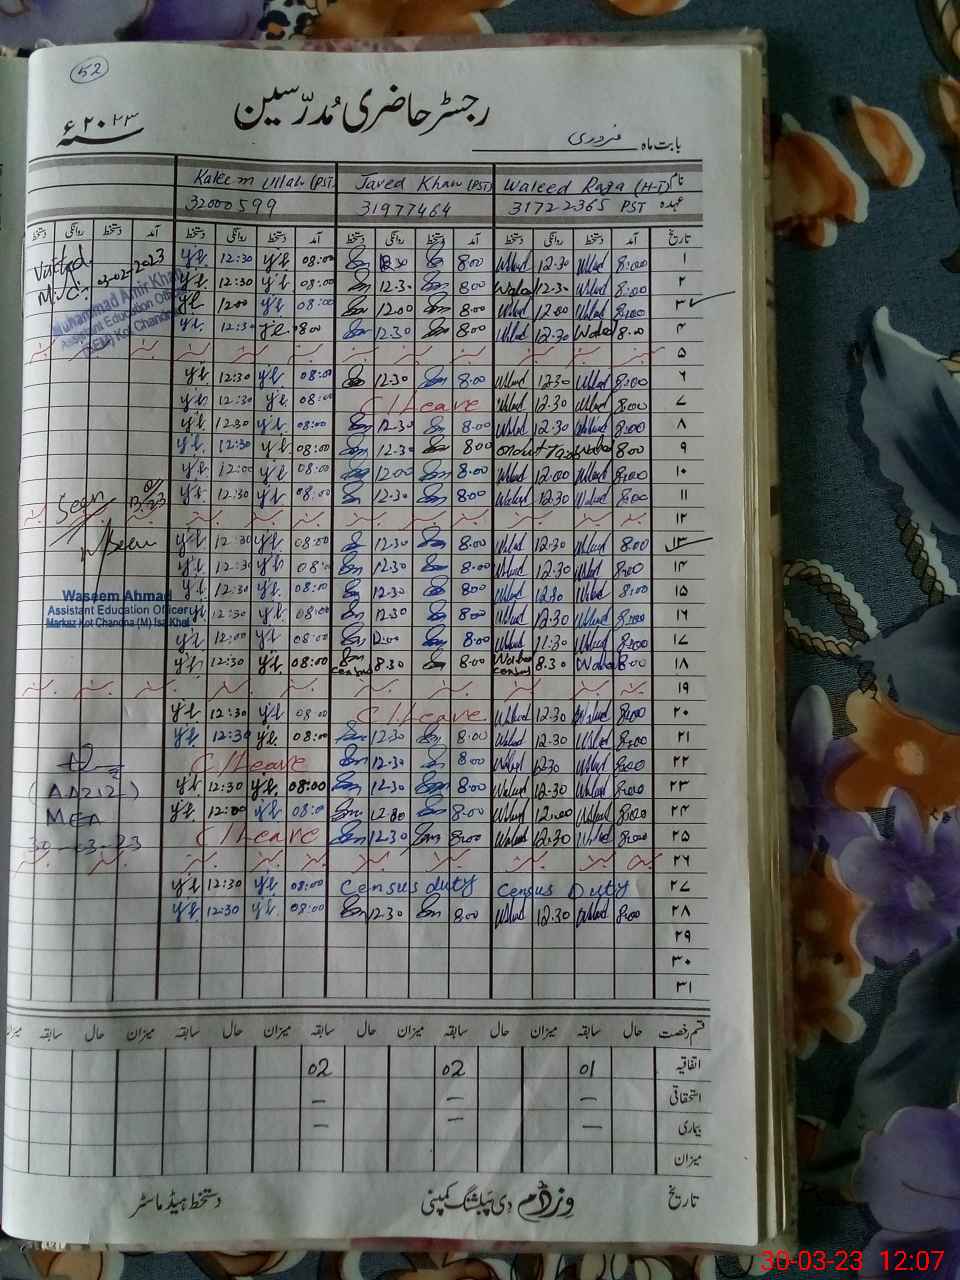 52
رجسٹر حاضری مُدرّسین
سنہ ۲۰۲۳ء
بابت ماہ فروری
Kaleem Ullah (PST) Javed Khan (PST) Waleed Raza (H-T) نام
32000599 31977464 31722365 PST عہدہ
تاریخ آمد دستخط روانگی دستخط آمد دستخط روانگی دستخط آمد دستخط روانگی دستخط آمد دستخط روانگی دستخط
Visited 12:30 08:00 12.30 8.00 12.30 8:00 ۱
03-02-2023 12:30 08:00 12.30 8.00 12.30 8:00 ۲
Muhammad Amir Khan 12:00 08:00 12.00 8.00 12.00 8:00 ۳
Assistant Education Officer 12:30 08:00 12.30 8.00 12.30 8:00 ۴
(M) Kot Chandna
۵
12:30 08:00 12.30 8.00 12.30 8:00 ۶
12:30 08:00 C/Leave 12.30 8:00 ۷
12:30 08:00 12.30 8.00 12.30 8:00 ۸
12:30 08:00 12.30 8.00 8.00 ۹
12:00 08:00 12.00 8.00 12.00 8:00 ۱۰
Seen 12:30 08:00 12.30 8.00 12.30 8:00 ۱۱
۱۲
Seen 12:30 08:00 12.30 8.00 12.30 8:00 ۱۳
12:30 08:00 12.30 8.00 12.30 8:00 ۱۴
Waseem Ahmad 12:30 08:00 12.30 8.00 12.30 8:00 ۱۵
Assistant Education Officer 12:30 08:00 12.30 8.00 12.30 8:00 ۱۶
Markaz Kot Chandna (M) Isa Khel 12:00 08:00 12.00 8.00 11.30 8:00 ۱۷
12:30 08:00 census 8.30 8.00 census 8.30 8.00 ۱۸
۱۹
12:30 08:00 C/Leave 12.30 8:00 ۲۰
12:30 08:00 12.30 8:00 12.30 8:00 ۲۱
C/Leave 12.30 8.00 12.30 8:00 ۲۲
(AA212) 12:30 08:00 12.30 8.00 12.30 8:00 ۲۳
MEA 12:00 08:00 12.00 8.00 12.00 8:00 ۲۴
30-03-23 C/Leave 12.30 8.00 12.30 8:00 ۲۵
۲۶
12:30 08:00 Census duty Census Duty ۲۷
12:30 08:00 12.30 8.00 12.30 8:00 ۲۸
۲۹
۳۰
۳۱
قسم رخصت حال سابقہ میزان حال سابقہ میزان حال سابقہ میزان حال سابقہ میزان
اتفاقیہ 01 02 02
استحقاقی — — —
بیماری — —
میزان
تاریخ وزڈم دی پبلشنگ کمپنی دستخط ہیڈ ماسٹر
30-03-23 12:07